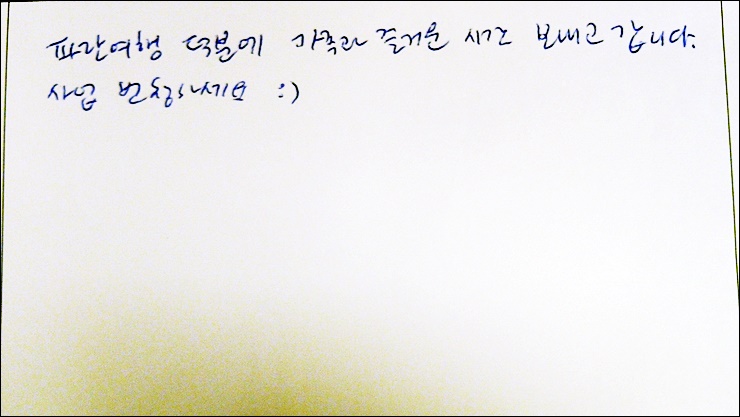 파란여행 덕분에 가족과 즐거운 시간 보내고 갑니다.
사업 번창하세요 :)